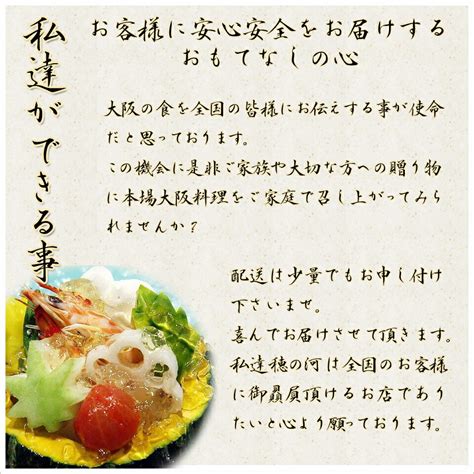 私達ができる事
お客様に安心安全をお届けする
おもてなしの心
大阪の食を全国の皆様にお伝えする事が使命
だと思っております。
この機会に是非ご家族や大切な方への贈り物
に本場大阪料理をご家庭で召し上がってみら
れませんか？
配送は少量でもお申し付け
下さいませ。
喜んでお届けさせて頂きます。
私達穂の河は全国のお客様
に御贔屓頂けるお店であり
たいと心より願っております。